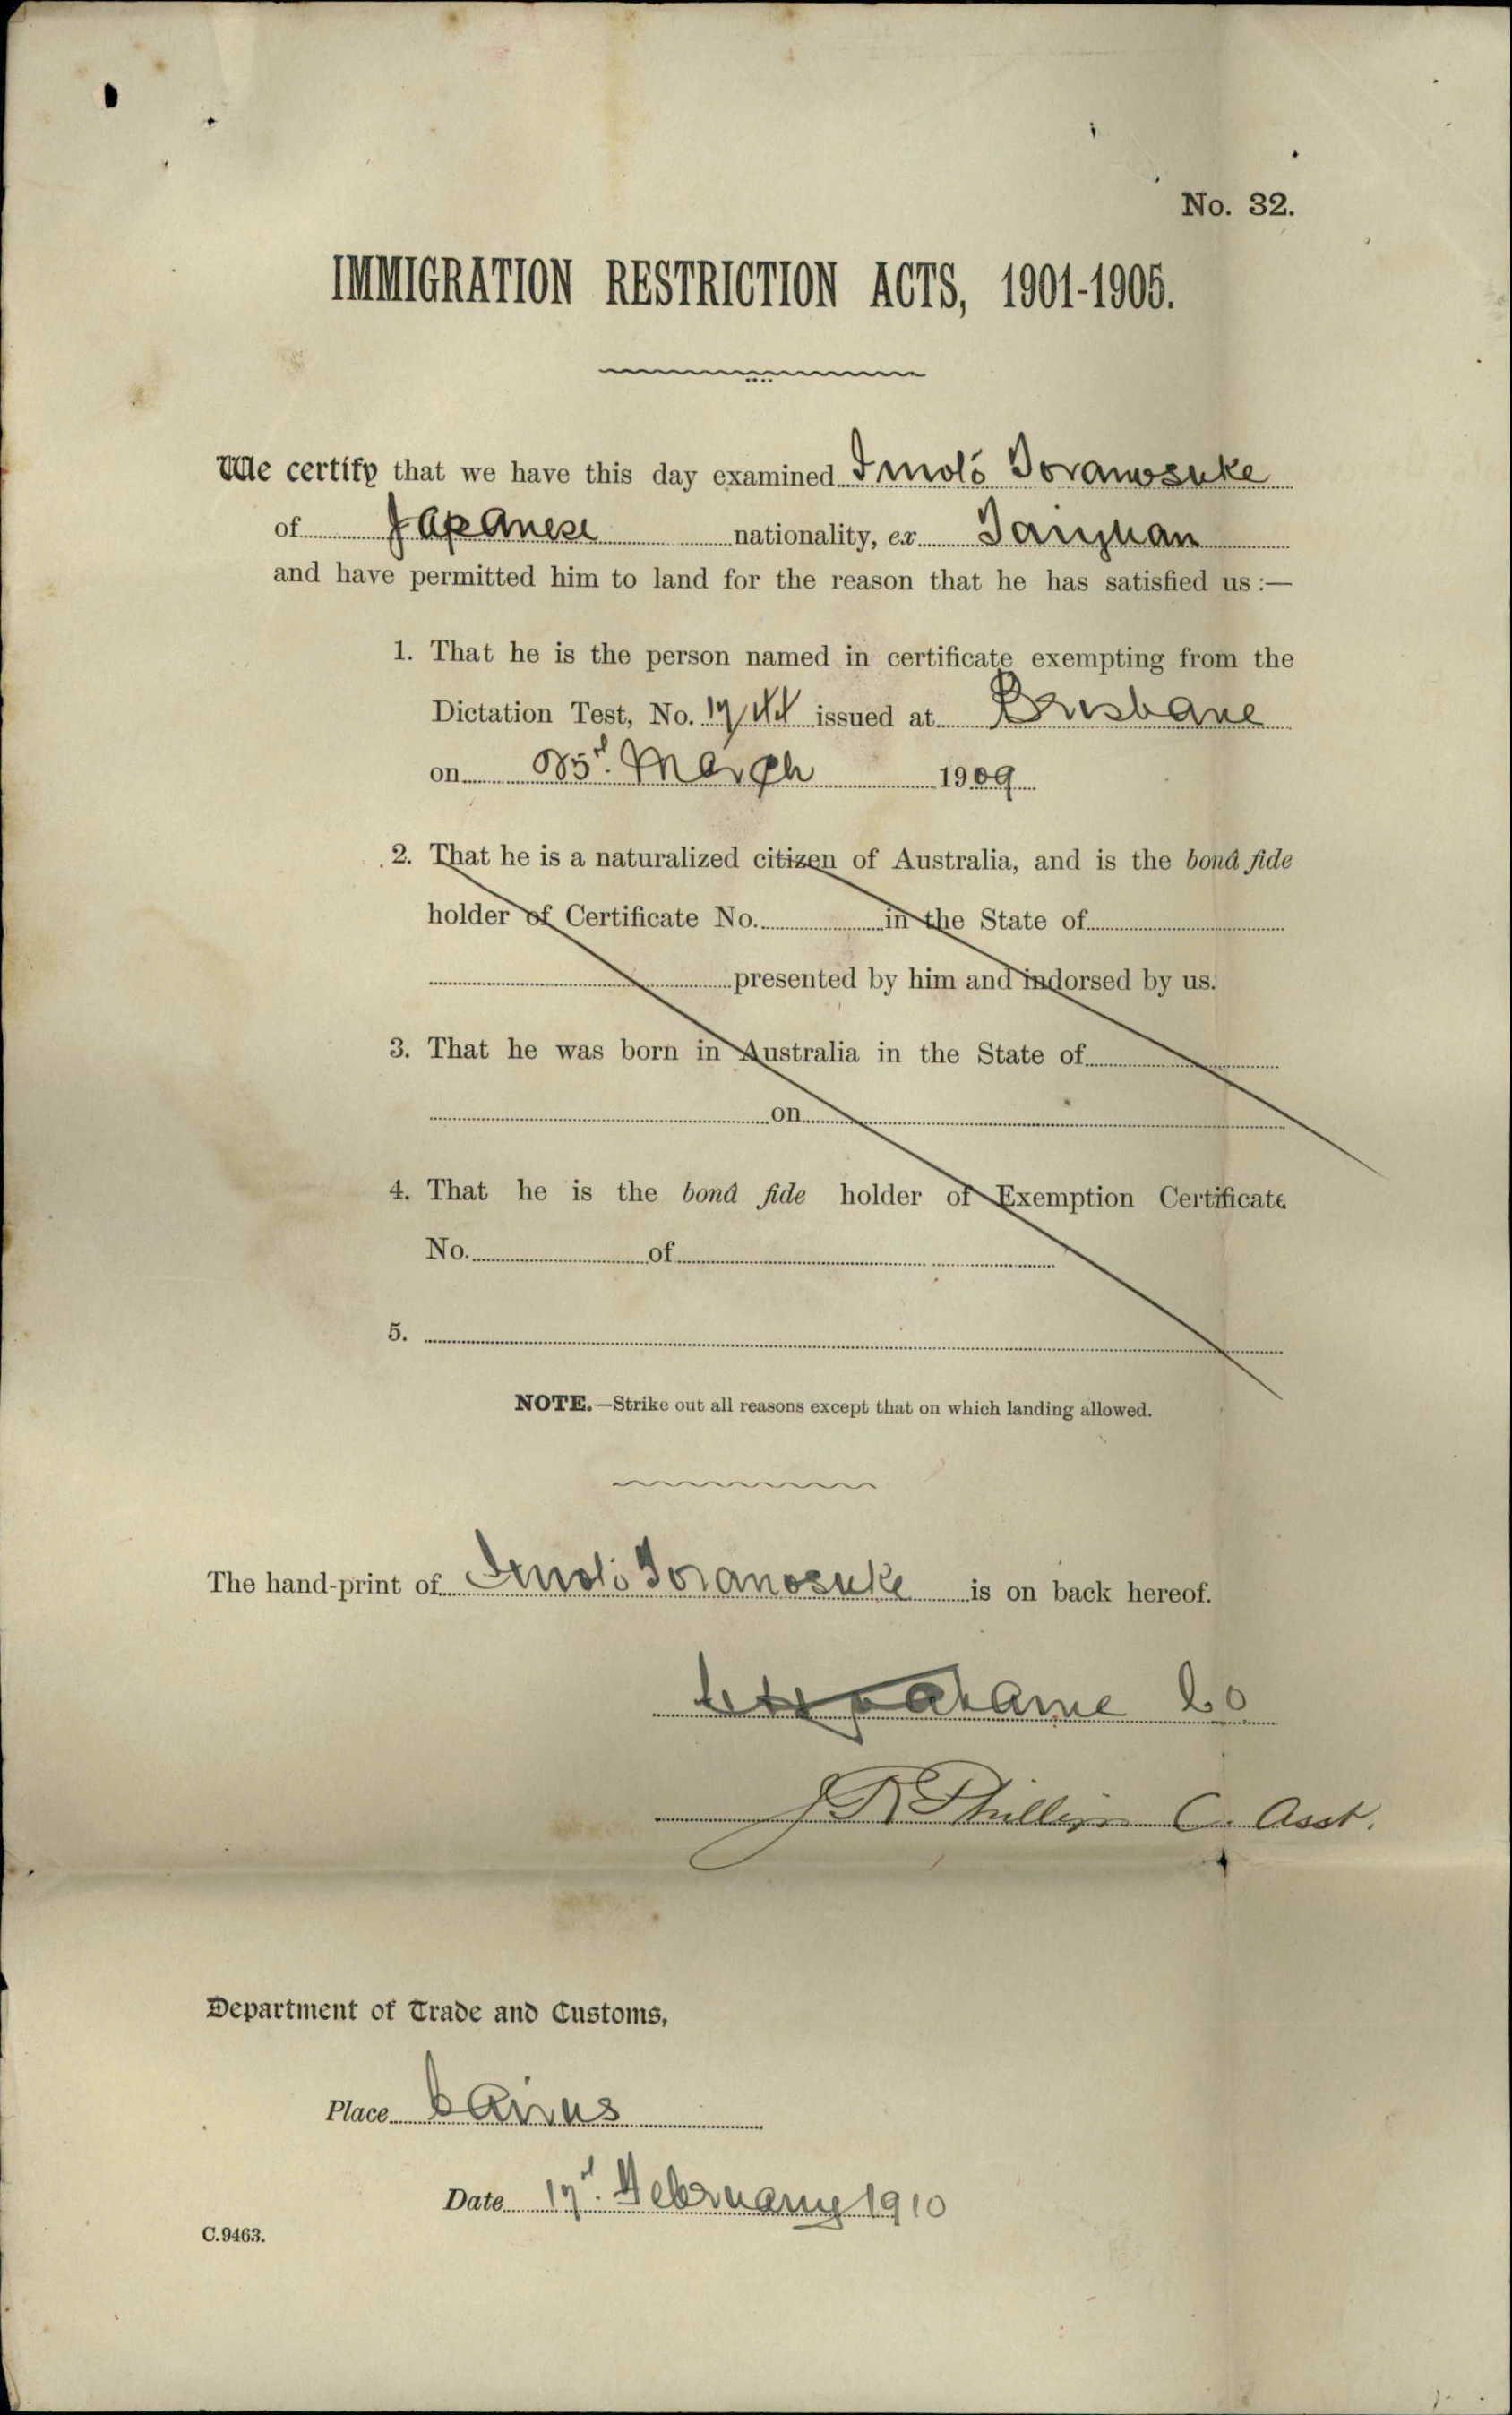 No. 32.
IMMIGRATION RESTRICTION ACTS, 1901-1905.
We certify that we have this day examined Imoto Toranosuke
of Japanese nationality, ex Taiyuan
and have permitted him to land for the reason that he has satisfied us :—
1. That he is the person named in certificate exempting from the
Dictation Test, No. issued at Brisbane
on March 1909
2. That he is a naturalized citizen of Australia, and is the bonâ fide
holder of Certificate No. in the State of
presented by him and indorsed by us.
3. That he was born in Australia in the State of
on
4. That he is the bonâ fide holder of Exemption Certificate
No. of
5.
NOTE.—Strike out all reasons except that on which landing allowed.
The hand-print of Imoto Toranosuke is on back hereof.
J R Phillips C. Asst.
Department of Trade and Customs,
Place Cairns
Date 17th February 1910
C.9463.